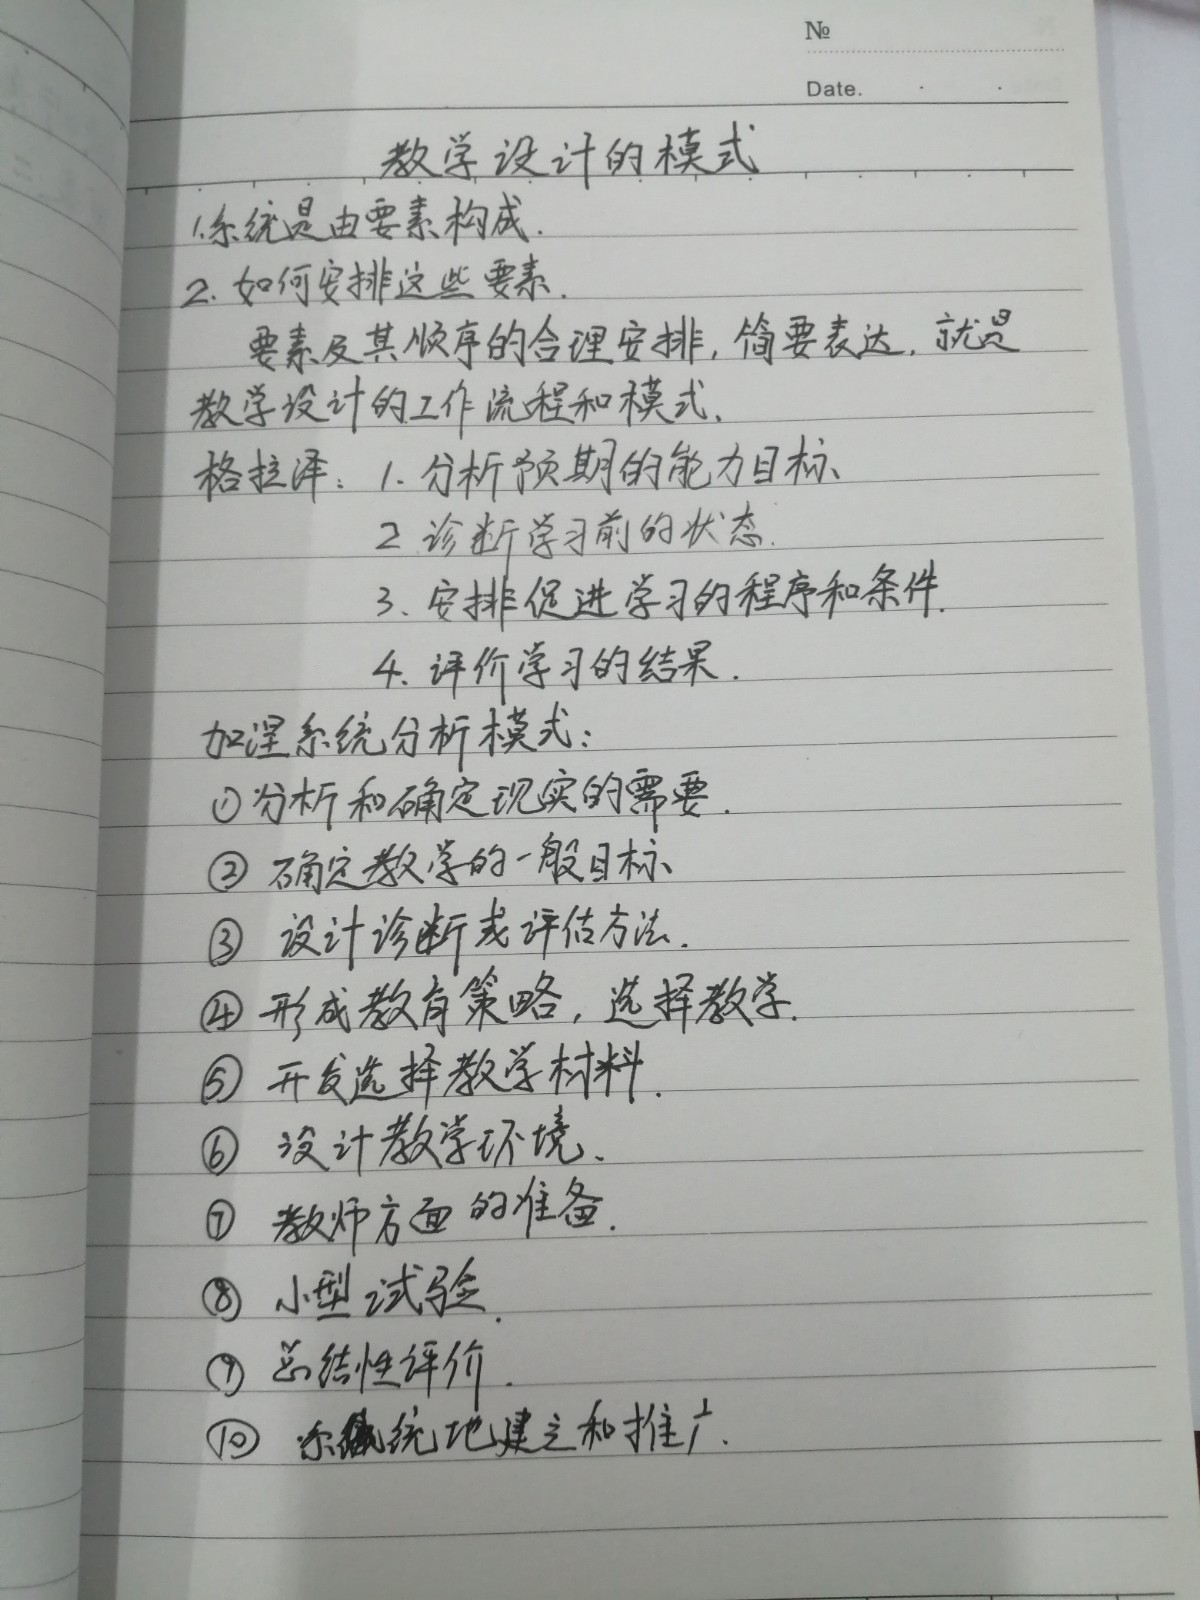 №
Date.
教学设计的模式
1.系统是由要素构成.
2.如何安排这些要素.
要素及其顺序的合理安排,简要表达,就是
教学设计的工作流程和模式.
格拉泽:1.分析预期的能力目标、
2 诊断学习前的状态.
3、安排促进学习的程序和条件.
4、评价学习的结果.
加涅系统分析模式:
①分析和确定现实的需要.
②确定教学的一般目标、
③设计诊断或评估方法.
④形成教育策略,选择教学.
⑤开发选择教学材料.
⑥设计教学环境、
⑦教师方面的准备.
⑧小型试验.
⑨总结性评价.
⑩系统地建立和推广.